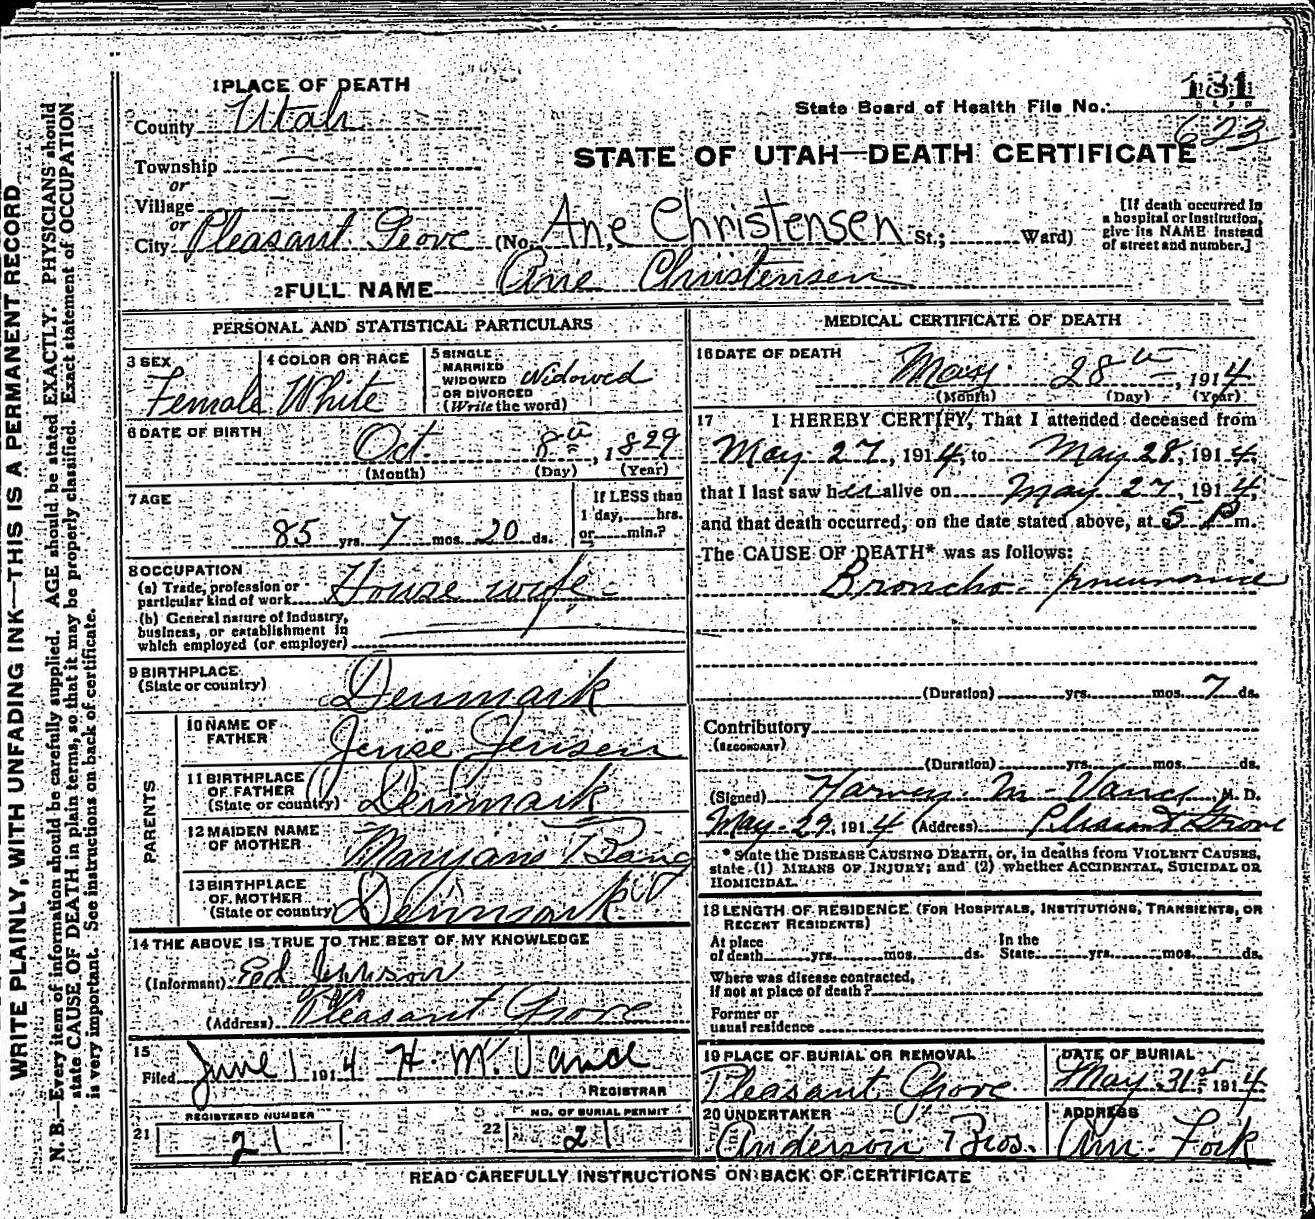 1 PLACE OF DEATH
County Utah
Township —
or
Village
or
City Pleasant Grove (No. Ane Christensen St.; Ward)
State Board of Health File No. 181
623
STATE OF UTAH—DEATH CERTIFICATE
[If death occurred in
a hospital or institution,
give its NAME instead
of street and number.]
2 FULL NAME Ane Christensen
PERSONAL AND STATISTICAL PARTICULARS
3 SEX
Female
4 COLOR OR RACE
White
5 SINGLE
MARRIED
WIDOWED
OR DIVORCED
(Write the word)
Widowed
6 DATE OF BIRTH
Oct. 8th, 1829
(Month) (Day) (Year)
7 AGE
85 yrs. 7 mos. 20 ds.
If LESS than
1 day, hrs.
or min.?
8 OCCUPATION
(a) Trade, profession or
particular kind of work House wife
(b) General nature of industry,
business, or establishment in
which employed (or employer)
9 BIRTHPLACE
(State or country)
Denmark
PARENTS
10 NAME OF
FATHER
Jense Jensen
11 BIRTHPLACE
OF FATHER
(State or country)
Denmark
12 MAIDEN NAME
OF MOTHER
Maryans Bang
13 BIRTHPLACE
OF MOTHER
(State or country)
Denmark
14 THE ABOVE IS TRUE TO THE BEST OF MY KNOWLEDGE
(Informant) Ed
(Address) Pleasant Grove
15
Filed June 1 1914 H. M. Vance
REGISTRAR
REGISTERED NUMBER
21 21
NO. OF BURIAL PERMIT
22 21
MEDICAL CERTIFICATE OF DEATH
16 DATE OF DEATH
May 28th, 1914
(Month) (Day) (Year)
17 I HEREBY CERTIFY, That I attended deceased from
May 27, 1914, to May 28, 1914,
that I last saw her alive on May 27, 1914,
and that death occurred, on the date stated above, at 5 P m.
The CAUSE OF DEATH* was as follows:
Broncho-pneumonia
(Duration) yrs. mos. 7 ds.
Contributory
(SECONDARY)
(Duration) yrs. mos. ds.
(Signed) Harvey M. Vance, M. D.
May 29, 1914 (Address) Pleasant Grove
* State the DISEASE CAUSING DEATH, or, in deaths from VIOLENT CAUSES,
state (1) MEANS OF INJURY; and (2) whether ACCIDENTAL, SUICIDAL OR
HOMICIDAL.
18 LENGTH OF RESIDENCE (FOR HOSPITALS, INSTITUTIONS, TRANSIENTS, OR
RECENT RESIDENTS)
At place
of death yrs. mos. ds.
In the
State yrs. mos. ds.
Where was disease contracted,
if not at place of death?
Former or
usual residence
19 PLACE OF BURIAL OR REMOVAL
Pleasant Grove
DATE OF BURIAL
May 31st 1914
20 UNDERTAKER
Anderson Bros.
ADDRESS
Am. Fork
READ CAREFULLY INSTRUCTIONS ON BACK OF CERTIFICATE
WRITE PLAINLY, WITH UNFADING INK—THIS IS A PERMANENT RECORD
N. B.—Every item of information should be carefully supplied. AGE should be stated EXACTLY. PHYSICIANS should
state CAUSE OF DEATH in plain terms, so that it may be properly classified. Exact statement of OCCUPATION
is very important. See instructions on back of certificate.